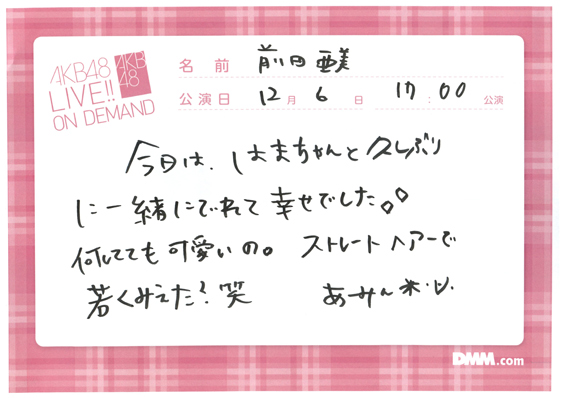 AKB48
LIVE!!
ON DEMAND
AKB
48
名前 前田亜美
公演日 12月6日 17:00公演
今日は、はまちゃんと久しぶり
に一緒にでれて幸せでした。
何してても可愛いの。ストレートヘアーで
若くみえた?笑 あーみん
DMM.com